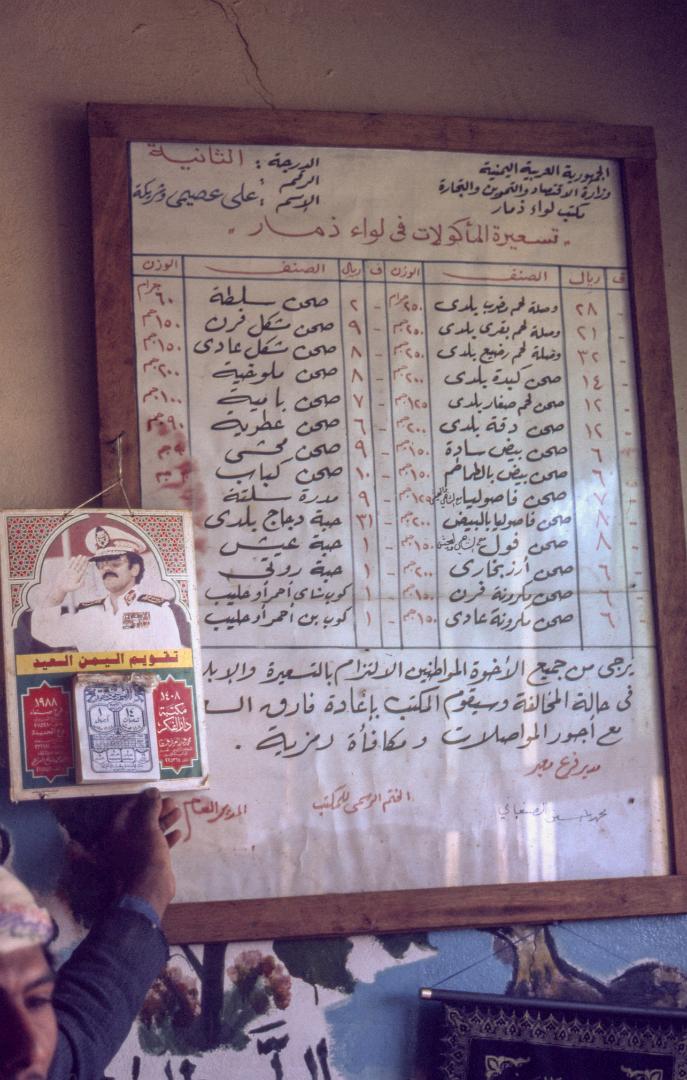 الجمهورية العربية اليمنية
وزارة الاقتصاد والتموين والتجارة
مكتب لواء ذمار
الدرجة : الثانية
الرقم :
الإسم : على عصيمى وشريكة
„ تسعيرة المأكولات فى لواء ذمار "
ف ريال الصنف الوزن ف ريال الصنف الوزن
- ٢٨ وصلة لحم بلدى ٢٥٠ جرام - ٢ صحن سلطة ٦٠ جرام
- ٢١ وصلة لحم بقرى بلدى ٢٥٠ جم - ٩ صحن شكل فرن ١٥٠ جم
- ٣٢ وصلة لحم رضيع بلدى ٢٥٠ جم - ٨ صحن شكل عادى ١٥٠ جم
- ١٤ صحن كبدة بلدى ٢٠٠ جم - ٨ صحن ملوخية ٢٠٠ جم
- ١٢ صحن لحم صغار بلدى ١٢٥ جم - ٧ صحن بامية ١٠٠ جم
- ١٢ صحن دقة بلدى ٢٠٠ جم - ٦ صحن عطرية ٩٠ جم
- ٦ صحن بيض سادة ١٥٠ جم - ٩ صحن محشى
- ٦ صحن بيض بالطماطم ١٥٠ جم - ١٠ صحن كباب
- ٧ صحن فاصوليا - ٩ مدرة سلتة
- ٨ صحن فاصوليا بالبيض ٢٠٠ جم - ٣١ حبة دجاج بلدى
- ٨ صحن فول ١٥٠ جم - ١ حبة عيش
- ٦ صحن أرز بخارى ٢٠٠ جم - ١ حبة روتى
- ٦ صحن مكرونة فرن ١٥٠ جم - ١ كوب شاى أحمر أو حليب
- ٦ صحن مكرونة عادى ١٥٠ جم - ١ كوب بن أحمر أو حليب
يرجى من جميع الأخوة المواطنين الالتزام بالتسعيرة والإبلا
فى حالة المخالفة وسيقوم المكتب بإعادة فارق الس
مع أجور المواصلات ومكافأة رمزية .
مدير فرع معبر
الختم الرسمى للمكتب
المدير العام
تقويم اليمن السعيد
١٤٠٨
مكتبة
دار الفكر
١٩٨٨
١٤
١